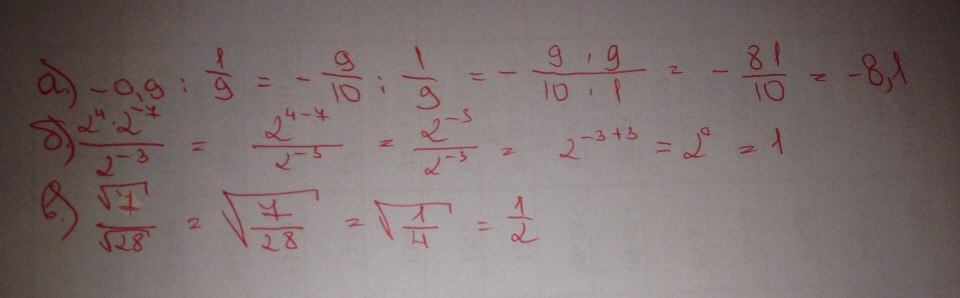 а) -0,9 : 1/9 = - 9/10 : 1/9 = - (9 · 9)/(10 · 1) = - 81/10 = -8,1
б) (2⁴ · 2⁻⁷)/2⁻³ = 2⁴⁻⁷/2⁻³ = 2⁻³/2⁻³ = 2⁻³⁺³ = 2⁰ = 1
в) √7/√28 = √(7/28) = √(1/4) = 1/2